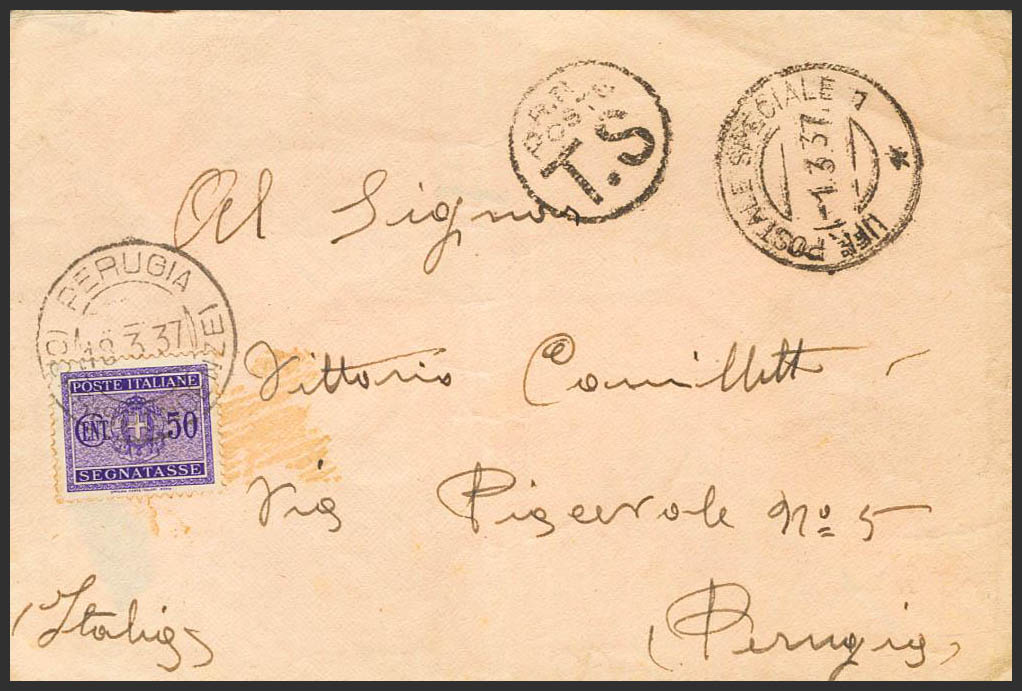 T.S
UFF. POSTALE SPECIALE 7
-1.3.37
Al Signor
PERUGIA
3.37
Vittorio Camilletti
POSTE ITALIANE
CENT. 50
SEGNATASSE
Via Piacevole Nº 5
(Italia)
(Perugia)